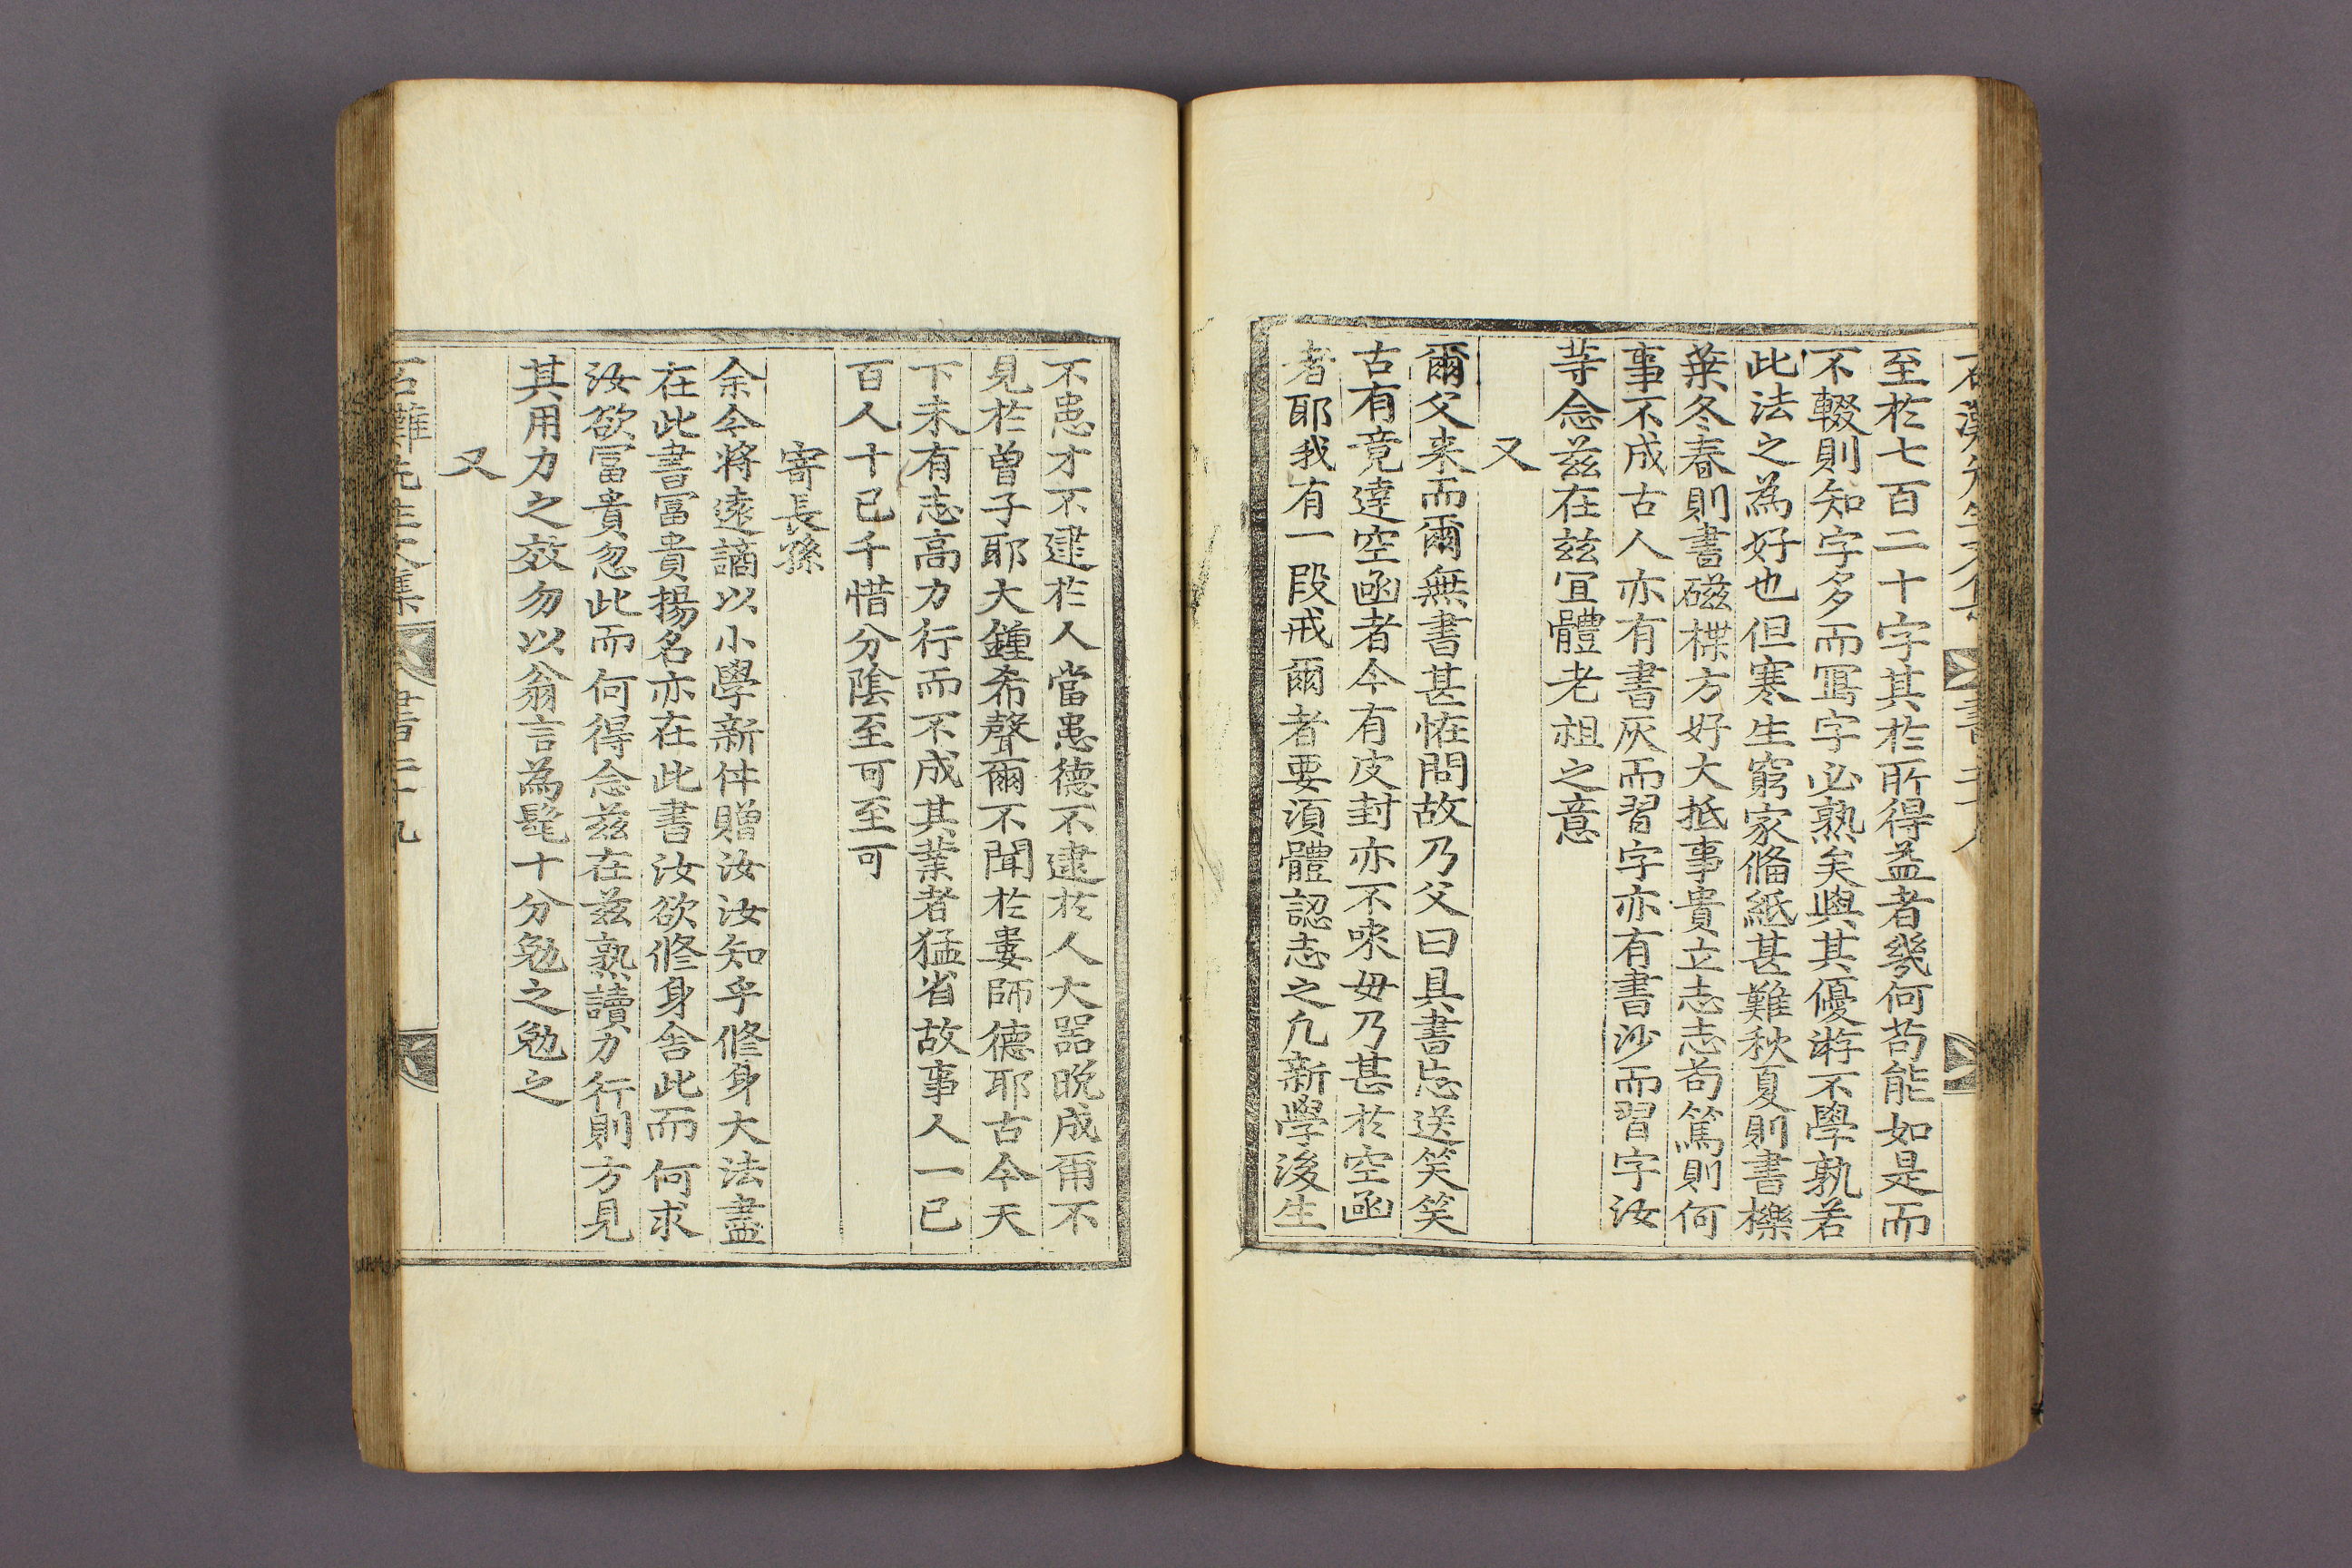 至於七百二十字其於所得益者幾何苟能如是而
不輟則知字多而寫字必熟矣與其優游不學孰若
此法之為好也但寒生窮家備紙甚難秋夏則書櫟
葉冬春則書磁楪方好大抵事貴立志志苟篤則何
事不成古人亦有書灰而習字亦有書沙而習字汝
等念茲在茲宜體老祖之意
又
爾父来而爾無書甚恠問故乃父曰具書忘送笑笑
古有竟達空函者今有皮封亦不來毋乃甚於空函
者耶我有一段戒爾者要須體認志之凡新學後生
不患才不逮於人當患德不逮於人大器晩成甭不
見於曾子耶大鍾希聲爾不聞於婁師德耶古今天
下未有志高力行而不成其業者猛省故事人一已
百人十已千惜分陰至可至可
寄長孫
余今將遠謫以小學新件贈汝汝知乎修身大法盡
在此書冨貴揚名亦在此書汝欲修身舍此而何求
汝欲冨貴忽此而何得念茲在茲熟讀力行則方見
其用力之效勿以翁言為髦十分勉之勉之
又
石灘先生文集 書 二十九